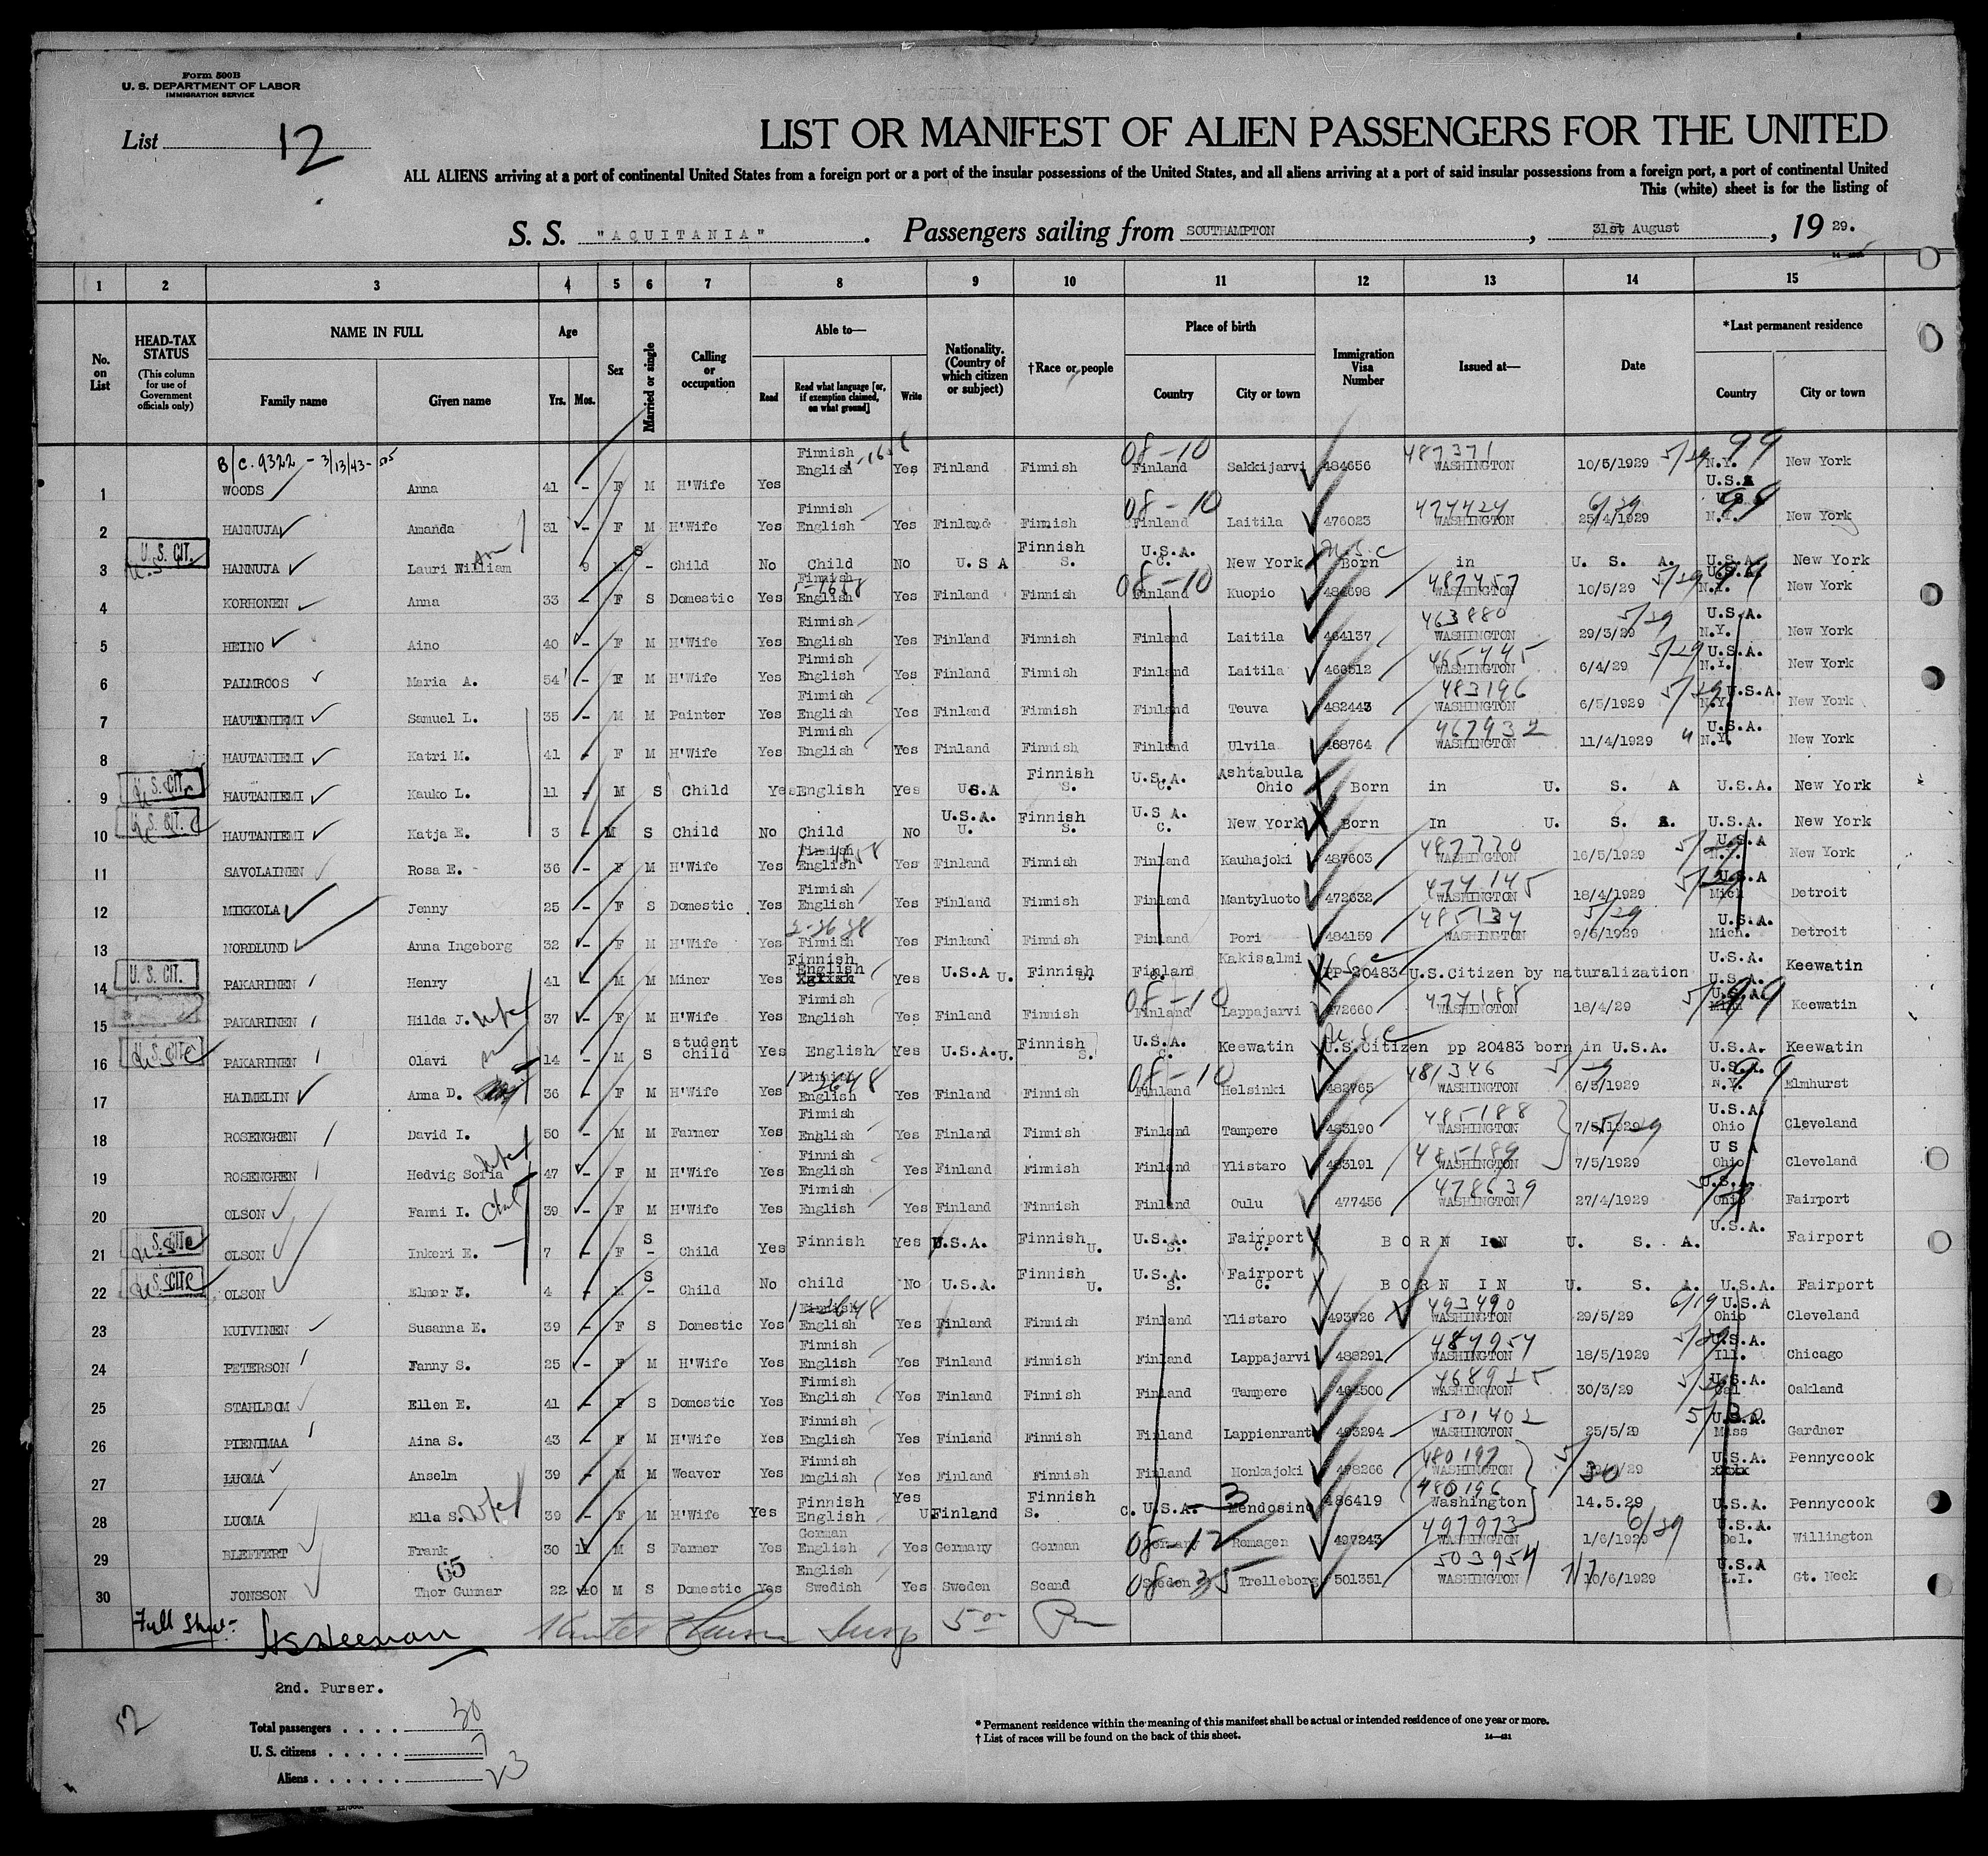 Form 500B
U. S. DEPARTMENT OF LABOR
IMMIGRATION SERVICE
List 12
LIST OR MANIFEST OF ALIEN PASSENGERS FOR THE UNITED
ALL ALIENS arriving at a port of continental United States from a foreign port or a port of the insular possessions of the United States, and all aliens arriving at a port of said insular possessions from a foreign port, a port of continental United
This (white) sheet is for the listing of
S. S. "AQUITANIA" . Passengers sailing from SOUTHAMPTON , 31st August , 19 29.
1 2 3 4 5 6 7 8 9 10 11 12 13 14 15
No. on List
HEAD-TAX STATUS
(This column for use of Government officials only)
NAME IN FULL
Family name Given name
Age
Yrs. Mos.
Sex
Married or single
Calling or occupation
Able to—
Read
Read what language [or, if exemption claimed, on what ground]
Write
Nationality. (Country of which citizen or subject)
†Race or people
Place of birth
Country City or town
Immigration Visa Number
Issued at—
Date
*Last permanent residence
Country City or town
B/C. 9322 - 3/13/43- 505
1 WOODS Anna 41 - F M H'Wife Yes Finnish English Yes Finland Finnish 08-10 Finland Sakkijarvi 484656 487371 WASHINGTON 10/5/1929 5/29 N.Y. U.S.A 99 New York
2 HANNUJA Amanda 31 - F M H'Wife Yes Finnish English Yes Finland Finnish 08-10 Finland Laitila 476023 474424 WASHINGTON 25/4/1929 N.Y. 99 New York
3 U.S. CIT. HANNUJA Lauri William 9 M S - Child No Child No U.S.A Finnish S. U.S.A. C. New York Born in U. S. A. U.S.A. New York
4 KORHONEN Anna 33 - F S Domestic Yes Finnish English Yes Finland Finnish 08-10 Finland Kuopio 484698 487457 WASHINGTON 10/5/29 5/29 U.S.A. N.Y. New York
5 HEINO Aino 40 - F M H'Wife Yes Finnish English Yes Finland Finnish Finland Laitila 464137 463880 WASHINGTON 29/3/29 5/29 U.S.A. N.Y. New York
6 PALMROOS Maria A. 54 - F M H'Wife Yes Finnish English Yes Finland Finnish Finland Laitila 466512 465445 WASHINGTON 6/4/29 5/29 U.S.A. N.Y. New York
7 HAUTANIEMI Samuel L. 35 - M M Painter Yes Finnish English Yes Finland Finnish Finland Teuva 482443 483196 WASHINGTON 6/5/1929 5/29 U.S.A. N.Y. New York
8 HAUTANIEMI Katri M. 41 - F M H'Wife Yes Finnish English Yes Finland Finnish Finland Ulvila 468764 467932 WASHINGTON 11/4/1929 " U.S.A. N.Y. New York
9 U.S. CIT. HAUTANIEMI Kauko L. 11 - M S Child Yes English Yes U.S.A Finnish S. U.S.A. C. Ashtabula Ohio Born in U. S. A U.S.A. New York
10 U.S. CIT. HAUTANIEMI Katja E. 3 - M S Child No Child No U.S.A. U. Finnish S. U.S A. C. New York Born In U. S. A. U.S.A. New York
11 SAVOLAINEN Rosa E. 36 - F M H'Wife Yes Finnish English Yes Finland Finnish Finland Kauhajoki 487603 487770 WASHINGTON 16/5/1929 U.S.A N.Y. New York
12 MIKKOLA Jenny 25 - F S Domestic Yes Finnish English Yes Finland Finnish Finland Mantyluoto 472632 474145 WASHINGTON 18/4/1929 U.S.A Mich Detroit
13 NORDLUND Anna Ingeborg 32 - F M H'Wife Yes Finnish Yes Finland Finnish Finland Pori 484159 485134 WASHINGTON 9/6/1929 5/29 U.S.A. Mich. Detroit
14 U.S. CIT. PAKARINEN Henry 41 - M M Miner Yes Finnish English Yes U.S.A U. Finnish Finland Kakisalmi PP 20483 U.S.Citizen by naturalization U.S.A. Keewatin
15 PAKARINEN Hilda J. wife 37 - F M H'Wife Yes Finnish English Yes Finland Finnish 08-10 Finland Lappajarvi 472660 474188 WASHINGTON 18/4/29 U.S.A. 99 Keewatin
16 U.S. CIT. PAKARINEN Olavi 14 - M S student child Yes English Yes U.S.A. U. Finnish S. U.S.A. C. Keewatin U.S.Citizen pp 20483 born in U.S.A. U.S.A. Keewatin
17 HAIMELIN Anna D. 36 - F M H'Wife Yes Finnish English Yes Finland Finnish 08-10 Finland Helsinki 482765 481346 WASHINGTON 6/5/1929 U.S.A. N.Y. 99 Elmhurst
18 ROSENGREN David I. 50 - M M Farmer Yes Finnish English Yes Finland Finnish Finland Tampere 483190 485188 WASHINGTON 7/5/1929 U.S.A. Ohio Cleveland
19 ROSENGREN Hedvig Sofia wife 47 - F M H'Wife Yes Finnish English Yes Finland Finnish Finland Ylistaro 483191 485189 WASHINGTON 7/5/1929 U S A Ohio Cleveland
20 OLSON Fanni I. 39 - F M H'Wife Yes Finnish English Yes Finland Finnish Finland Oulu 477456 478639 WASHINGTON 27/4/1929 U.S.A. Ohio Fairport
21 U.S. CIT. OLSON Inkeri E. 7 - F S - Child Yes Finnish Yes U.S.A. Finnish U. U.S.A. S. Fairport C. BORN IN U. S. A. U.S.A. Fairport
22 U.S. CIT. OLSON Elmer J. 4 - M S - Child No child No U.S.A. Finnish U. U.S.A. S. Fairport C. BORN IN U. S. A. U.S.A. Fairport
23 KUIVINEN Susanna E. 39 - F S Domestic Yes Finnish English Yes Finland Finnish Finland Ylistaro 493726 493490 WASHINGTON 29/5/29 U.S.A Ohio Cleveland
24 PETERSON Fanny S. 25 - F M H'Wife Yes Finnish English Yes Finland Finnish Finland Lappajarvi 488291 WASHINGTON 18/5/1929 U.S.A. Ill. Chicago
25 STAHLBOM Ellen E. 41 - F S Domestic Yes Finnish English Yes Finland Finnish Finland Tampere WASHINGTON 30/3/29 U.S.A. Cal Oakland
26 PIENIMAA Aina S. 43 - F M H'Wife Yes Finnish English Yes Finland Finnish Finland Lappienrant 493294 501402 WASHINGTON 25/5/29 U.S.A. Mass Gardner
27 LUOMA Anselm 39 - M M Weaver Yes Finnish English Yes Finland Finnish Finland Honkajoki 478266 480197 WASHINGTON U.S.A. Pennycook
28 LUOMA Ella S. wife 39 - F M H'Wife Yes Finnish English Yes U Finland Finnish S. C. U.S.A. 3 Mendosino 486419 480196 Washington 14.5.29 U.S.A. Pennycook
29 BLEFFERT Frank 30 11 M S Farmer Yes German English Yes Germany German 08-12 Germany Remagen 497243 497973 WASHINGTON 1/6/1929 6/29 U.S.A. Del. Willington
30 JONSSON 65 Thor Gunnar 22 10 M S Domestic Yes English Swedish Yes Sweden Scand 08-35 Sweden Trelleborg 501351 503954 WASHINGTON 10/6/1929 U.S.A L.I. Gt. Neck
Full Sheet-
2nd. Purser.
52
Total passengers . . . . 30
U. S. citizens . . . . . 7
Aliens . . . . . . 23
* Permanent residence within the meaning of this manifest shall be actual or intended residence of one year or more.
† List of races will be found on the back of this sheet.